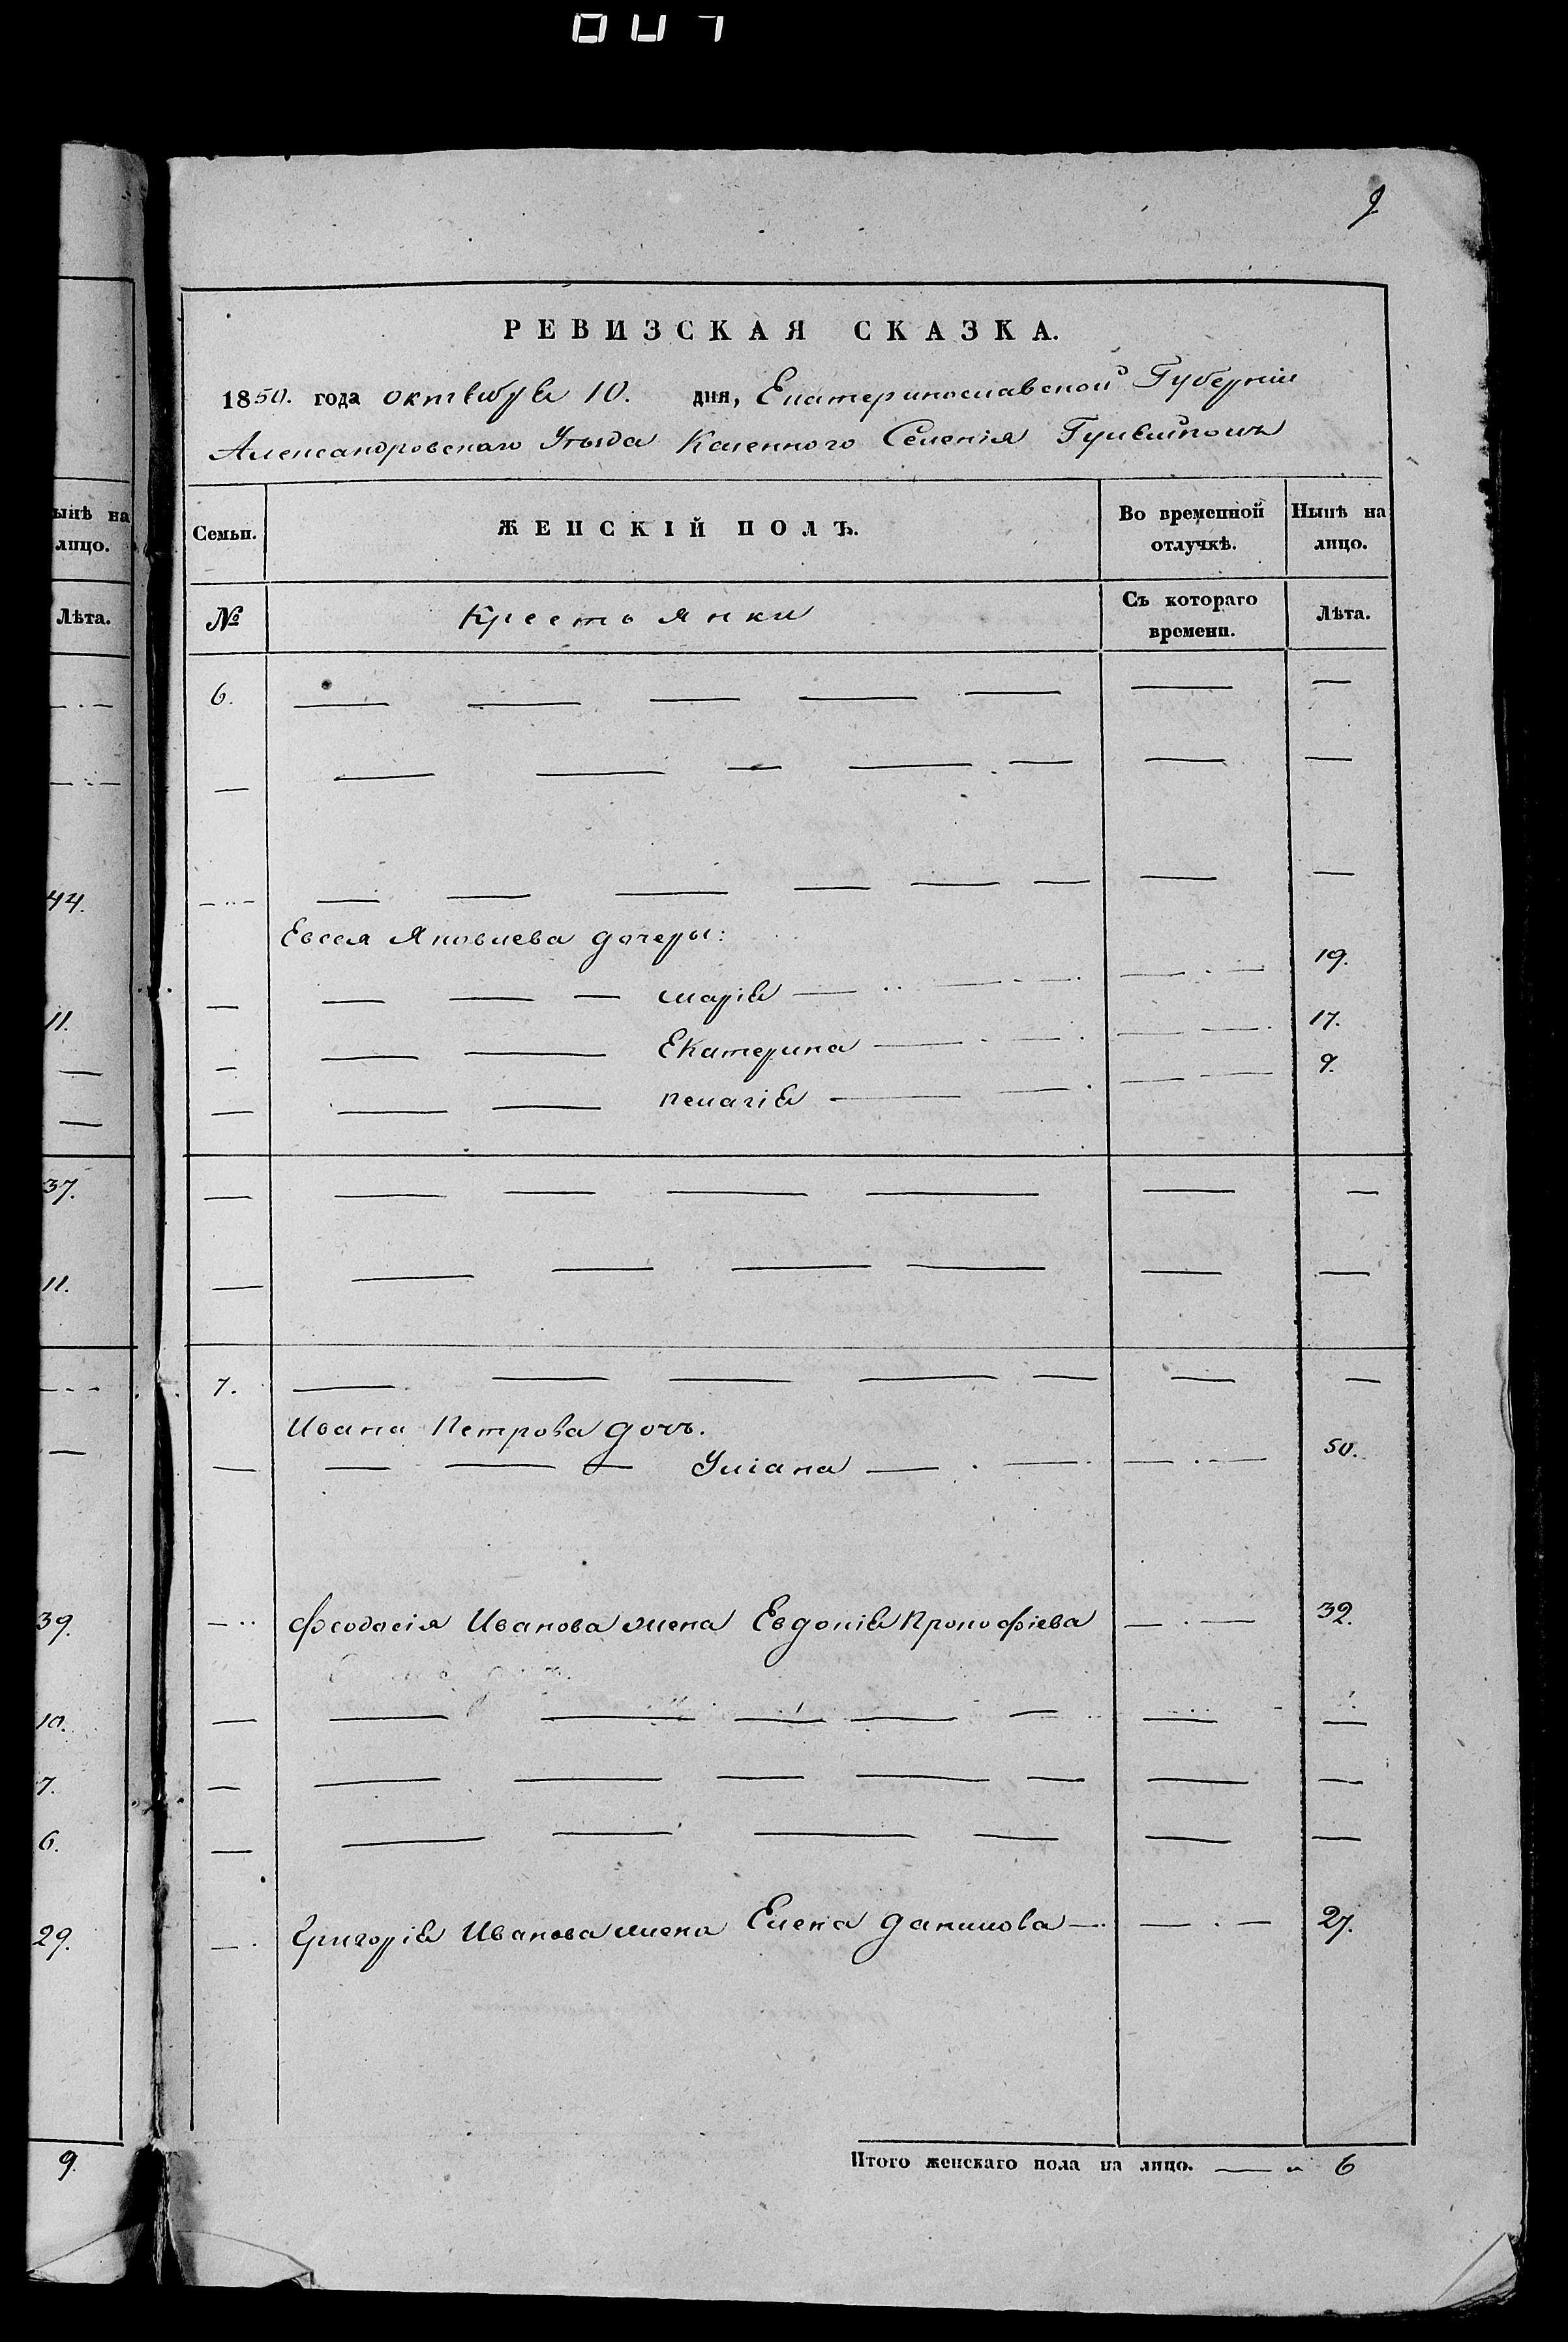 9
РЕВИЗСКАЯ СКАЗКА.
1850. года октября 10. дня, Екатеринославской Губерніи
Александровскаго Уѣзда Казенного Селенія Гуляйполь
ынѣ на лицо.
Лѣта.
44.
11.
37.
11.
39.
10.
7.
6.
29.
9.
Семьи. ЖЕНСКІЙ ПОЛЪ. Во временной отлучкѣ. Нынѣ на лицо.
№ Крестьянки Съ котораго времени. Лѣта.
6. — — — — — — —
— — — — — — — —
— — — — — — — — —
Евсея Яковлева дочери:
— — — — марія — — — 19.
— — — Екатерина — — — — 17.
— — — пелагія — — — — 9.
— — — — — — —
— — — — — — —
7. — — — — — — —
Ивана Петрова дочь.
— — — — Уліана — — — — 50.
— Феодосія Иванова жена Евдокія Прокофіева — — 32.
— — — — — — — —
— — — — — — — —
— — — — — — —
— Григорія Иванова жена Елена данилова — — — 27.
Итого женскаго пола на лицо. — „ 6